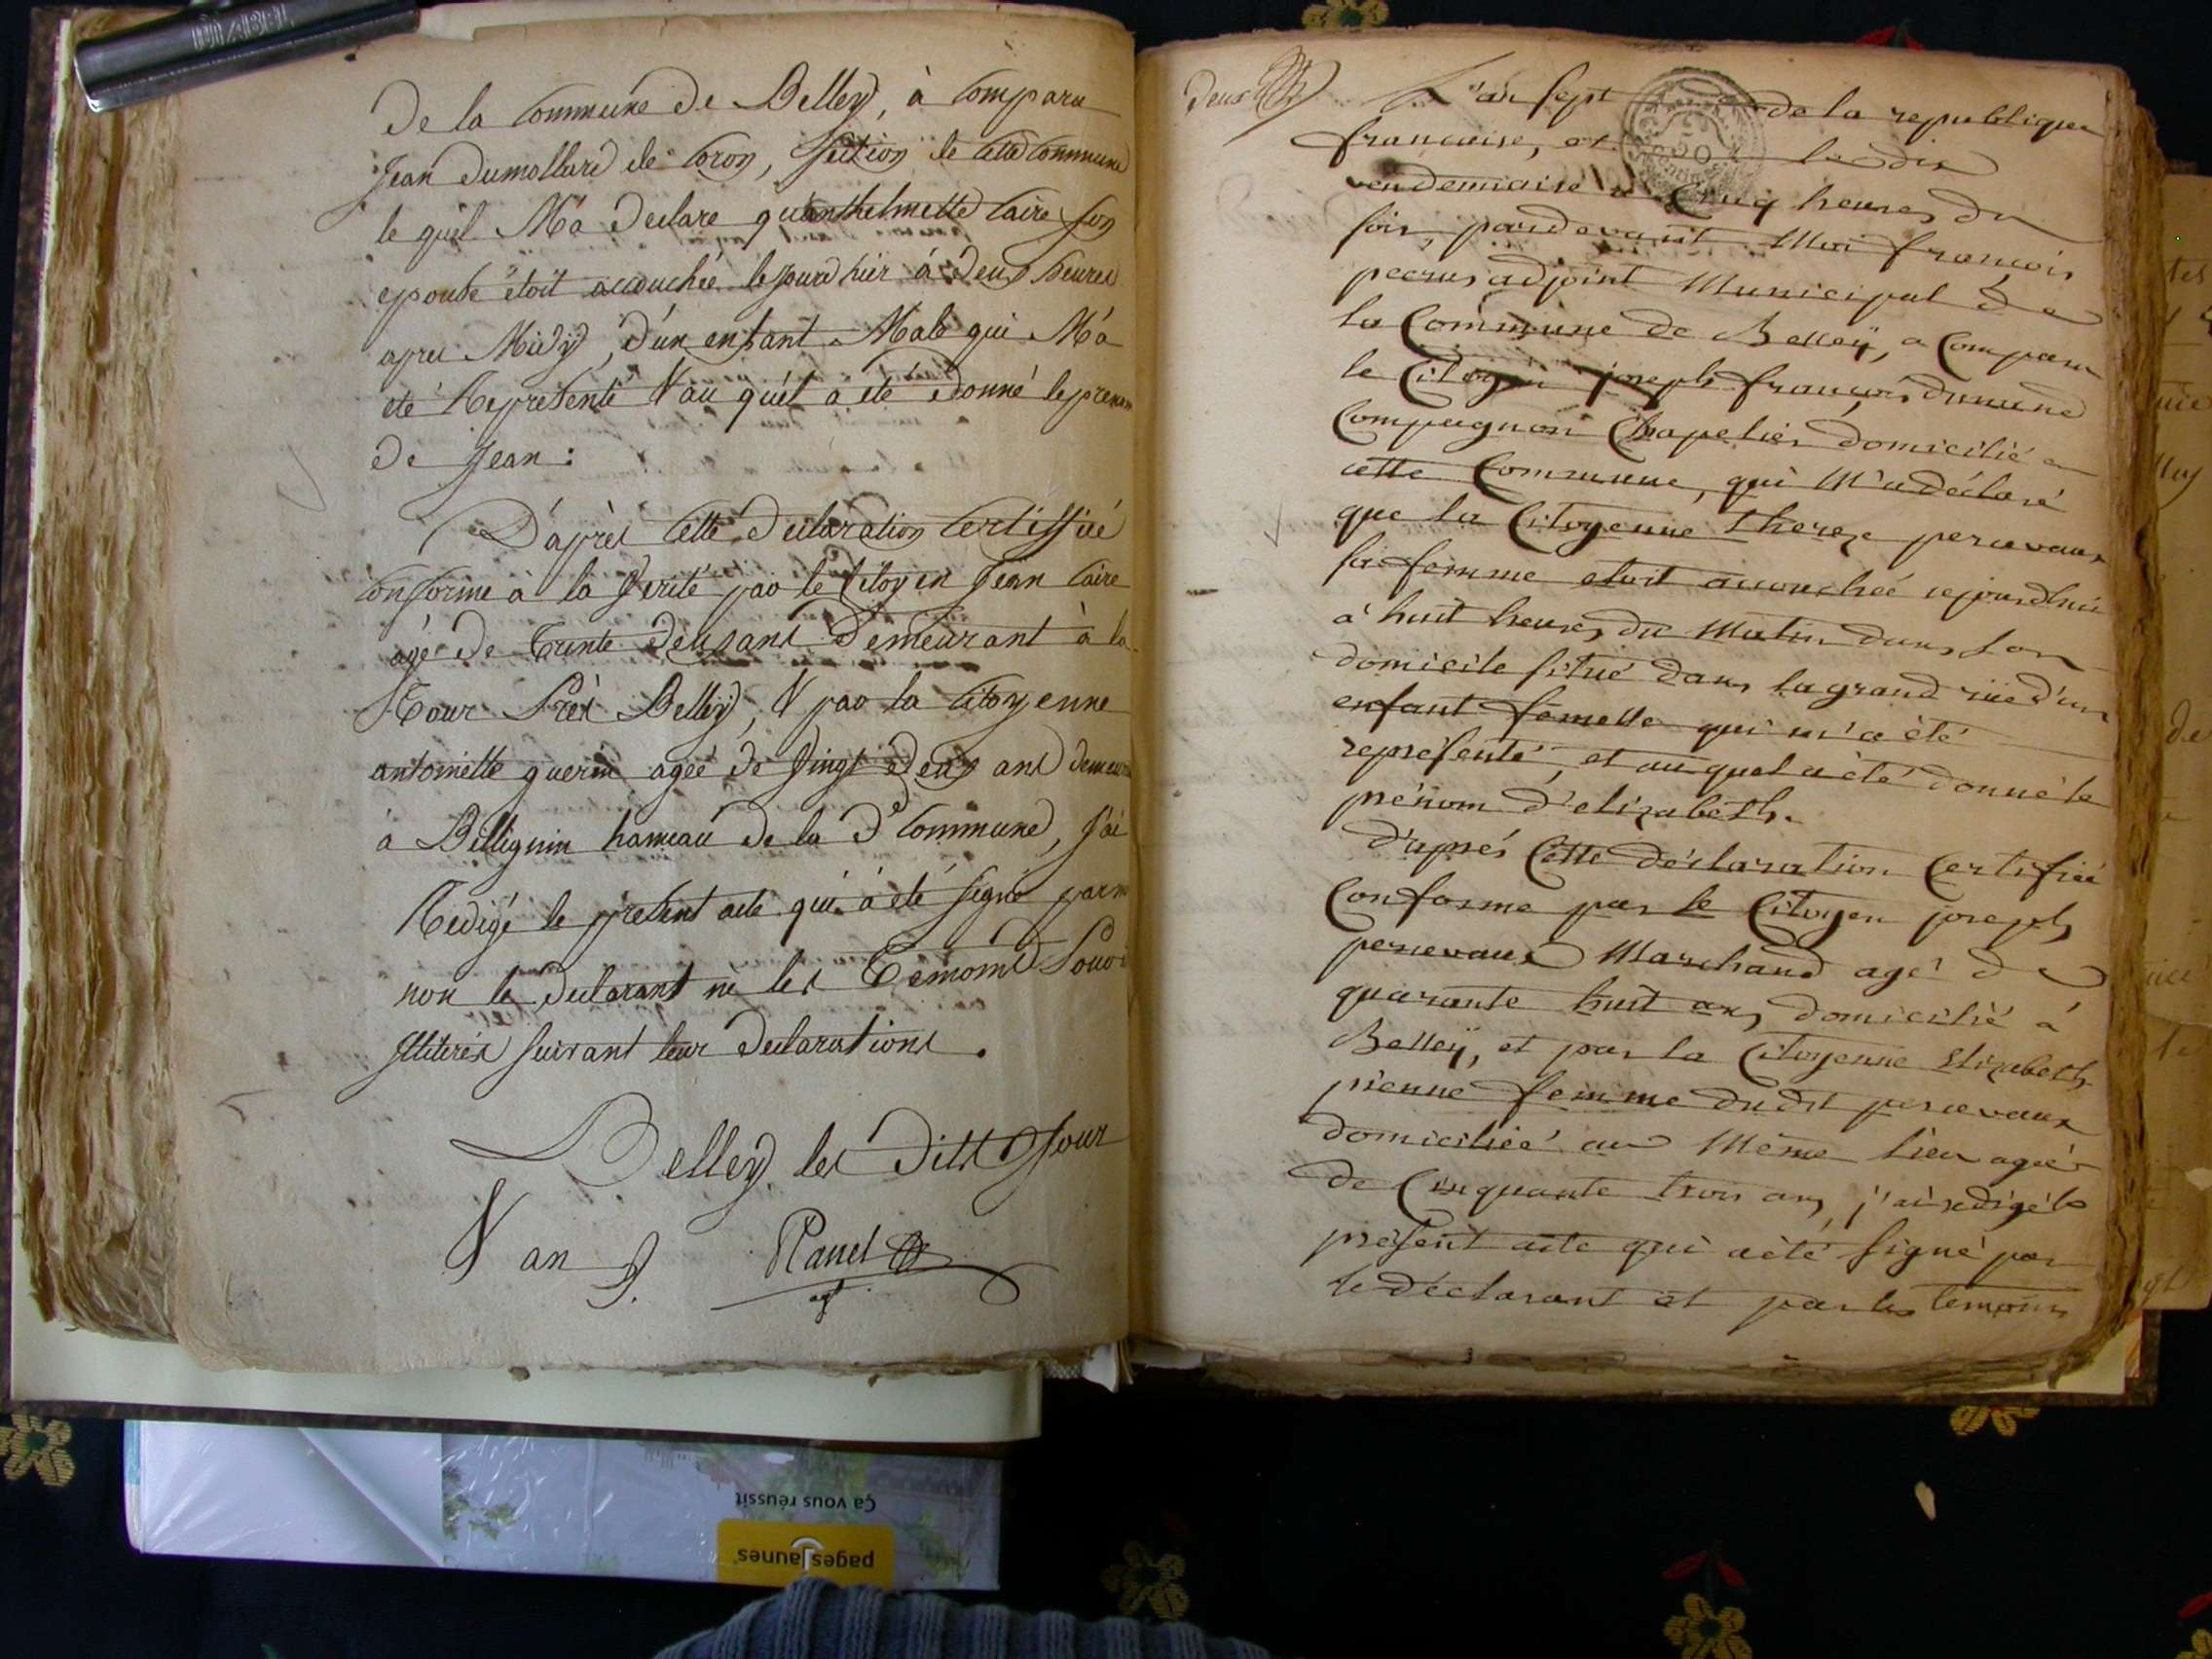 De la Commune de Belley, à Comparu
Jean Dumollard de Coron, section de cette Commune
le quel M'a declare qu'anthelmette Caire son
epouse étoit accouchée le jour d'hier à deux heures
apres Midy, d'un enfant Male qui M'a
eté Representé & au quel a été donné le prenom
de Jean :
D'après cette declaration Certiffié
Conforme à la Verité par le Citoyen Jean Caire
agé de Trente deux ans demeurant à la
Tour Près Belley, & par la Citoyenne
antoinette guerin agée de Vingt deux ans demeura
à Billignin hameau de la de Commune, J'ai
Redigé le present acte qui à eté signé par m
non le declarant ni les Temoins Pour
Illiterés suivant leur declarations.
Belley les Dits Jour
& an
deux
L'an sept de la republique
francaise, et le dix
vendemiaire a Cinq heures du
soir, pardevant Moi françois
adjoint Municipal de
la Commune de Belleÿ, a Comparu
le Citoyen joseph françois
Compagnon Chapelier domicilié en
cette Commune, qui M'a déclaré
que la Citoyenne thereze percevaux
sa femme etoit accouchée cejourdhui
à huit heures du Matin dans son
domicile situé dans la grand rüe d'un
enfant femelle qui m'a été
représenté, et auquel a été donné le
prénom d'elizabeth.
d'après Cette déclaration Certifiée
Conforme par le Citoyen joseph
percevaux Marchand agé de
quarante huit ans domicilié à
Belleÿ, et par la Citoyenne Elizabeth
femme dudit percevaux
domiciliée au Même lieu agée
de Cinquante trois ans, j'ai redigé le
présent acte qui a été signé par
le déclarant et par les temoins
Ça vous réussit
pagesJaunes